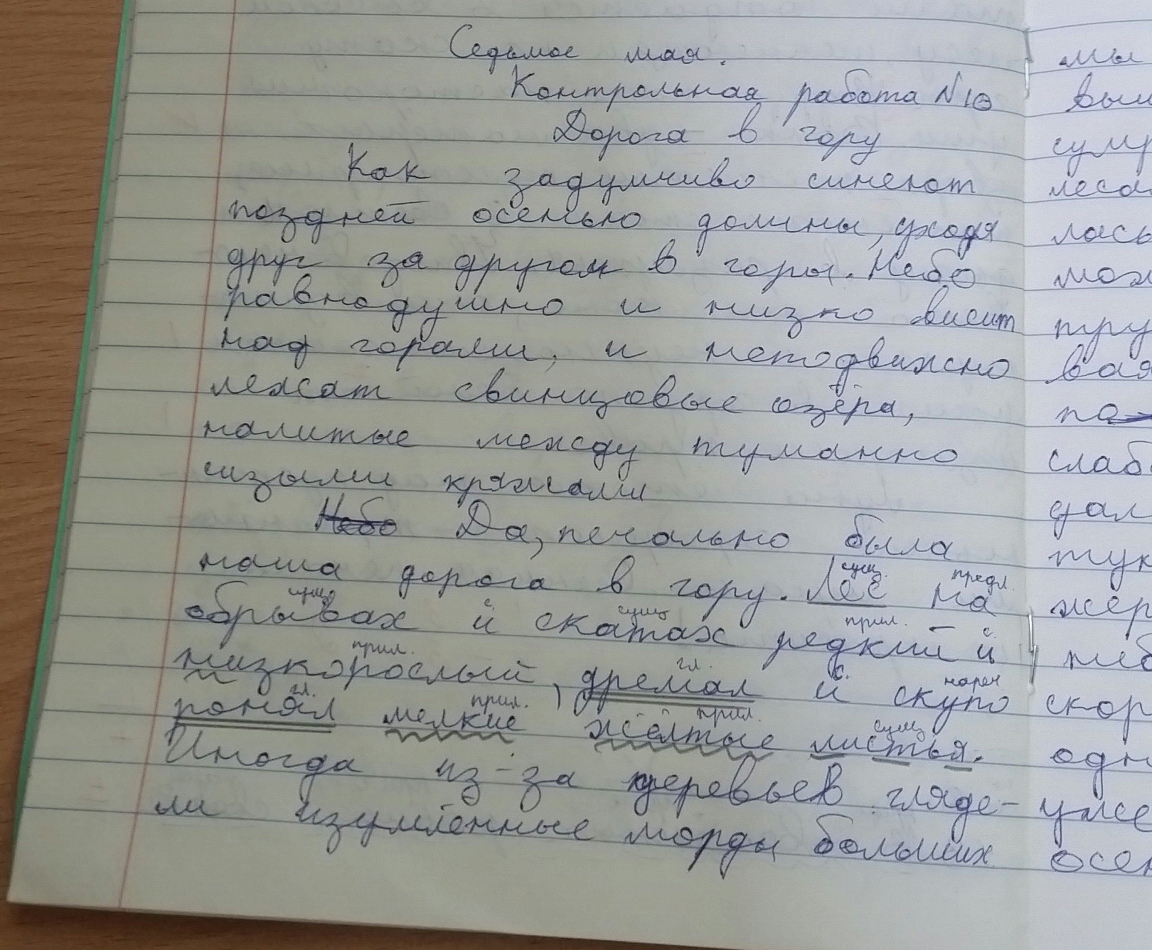 Седьмое мая.
Контрольная работа №10
Дорога в гору
Как задумчиво синеют
поздней осенью долины, уходя
друг за другом в горы. Небо
равнодушно и низко висит
над горами, и неподвижно
лежат свинцовые озёра,
налитые между туманно
сизыми кряжами
Небо Да, печально была
наша дорога в гору. Лес на
сущ. предл.
обрывах и скатах редкий и
сущ сущ прил. с.
низкорослый, дремал и скупо
прил. гл. с. нареч
ронял мелкие жёлтые листья.
гл. прил. прил. сущ
Иногда из-за деревьев гляде-
ли изумлённые морды больших
мы
лась
слаб
скор
одн
уже
осен